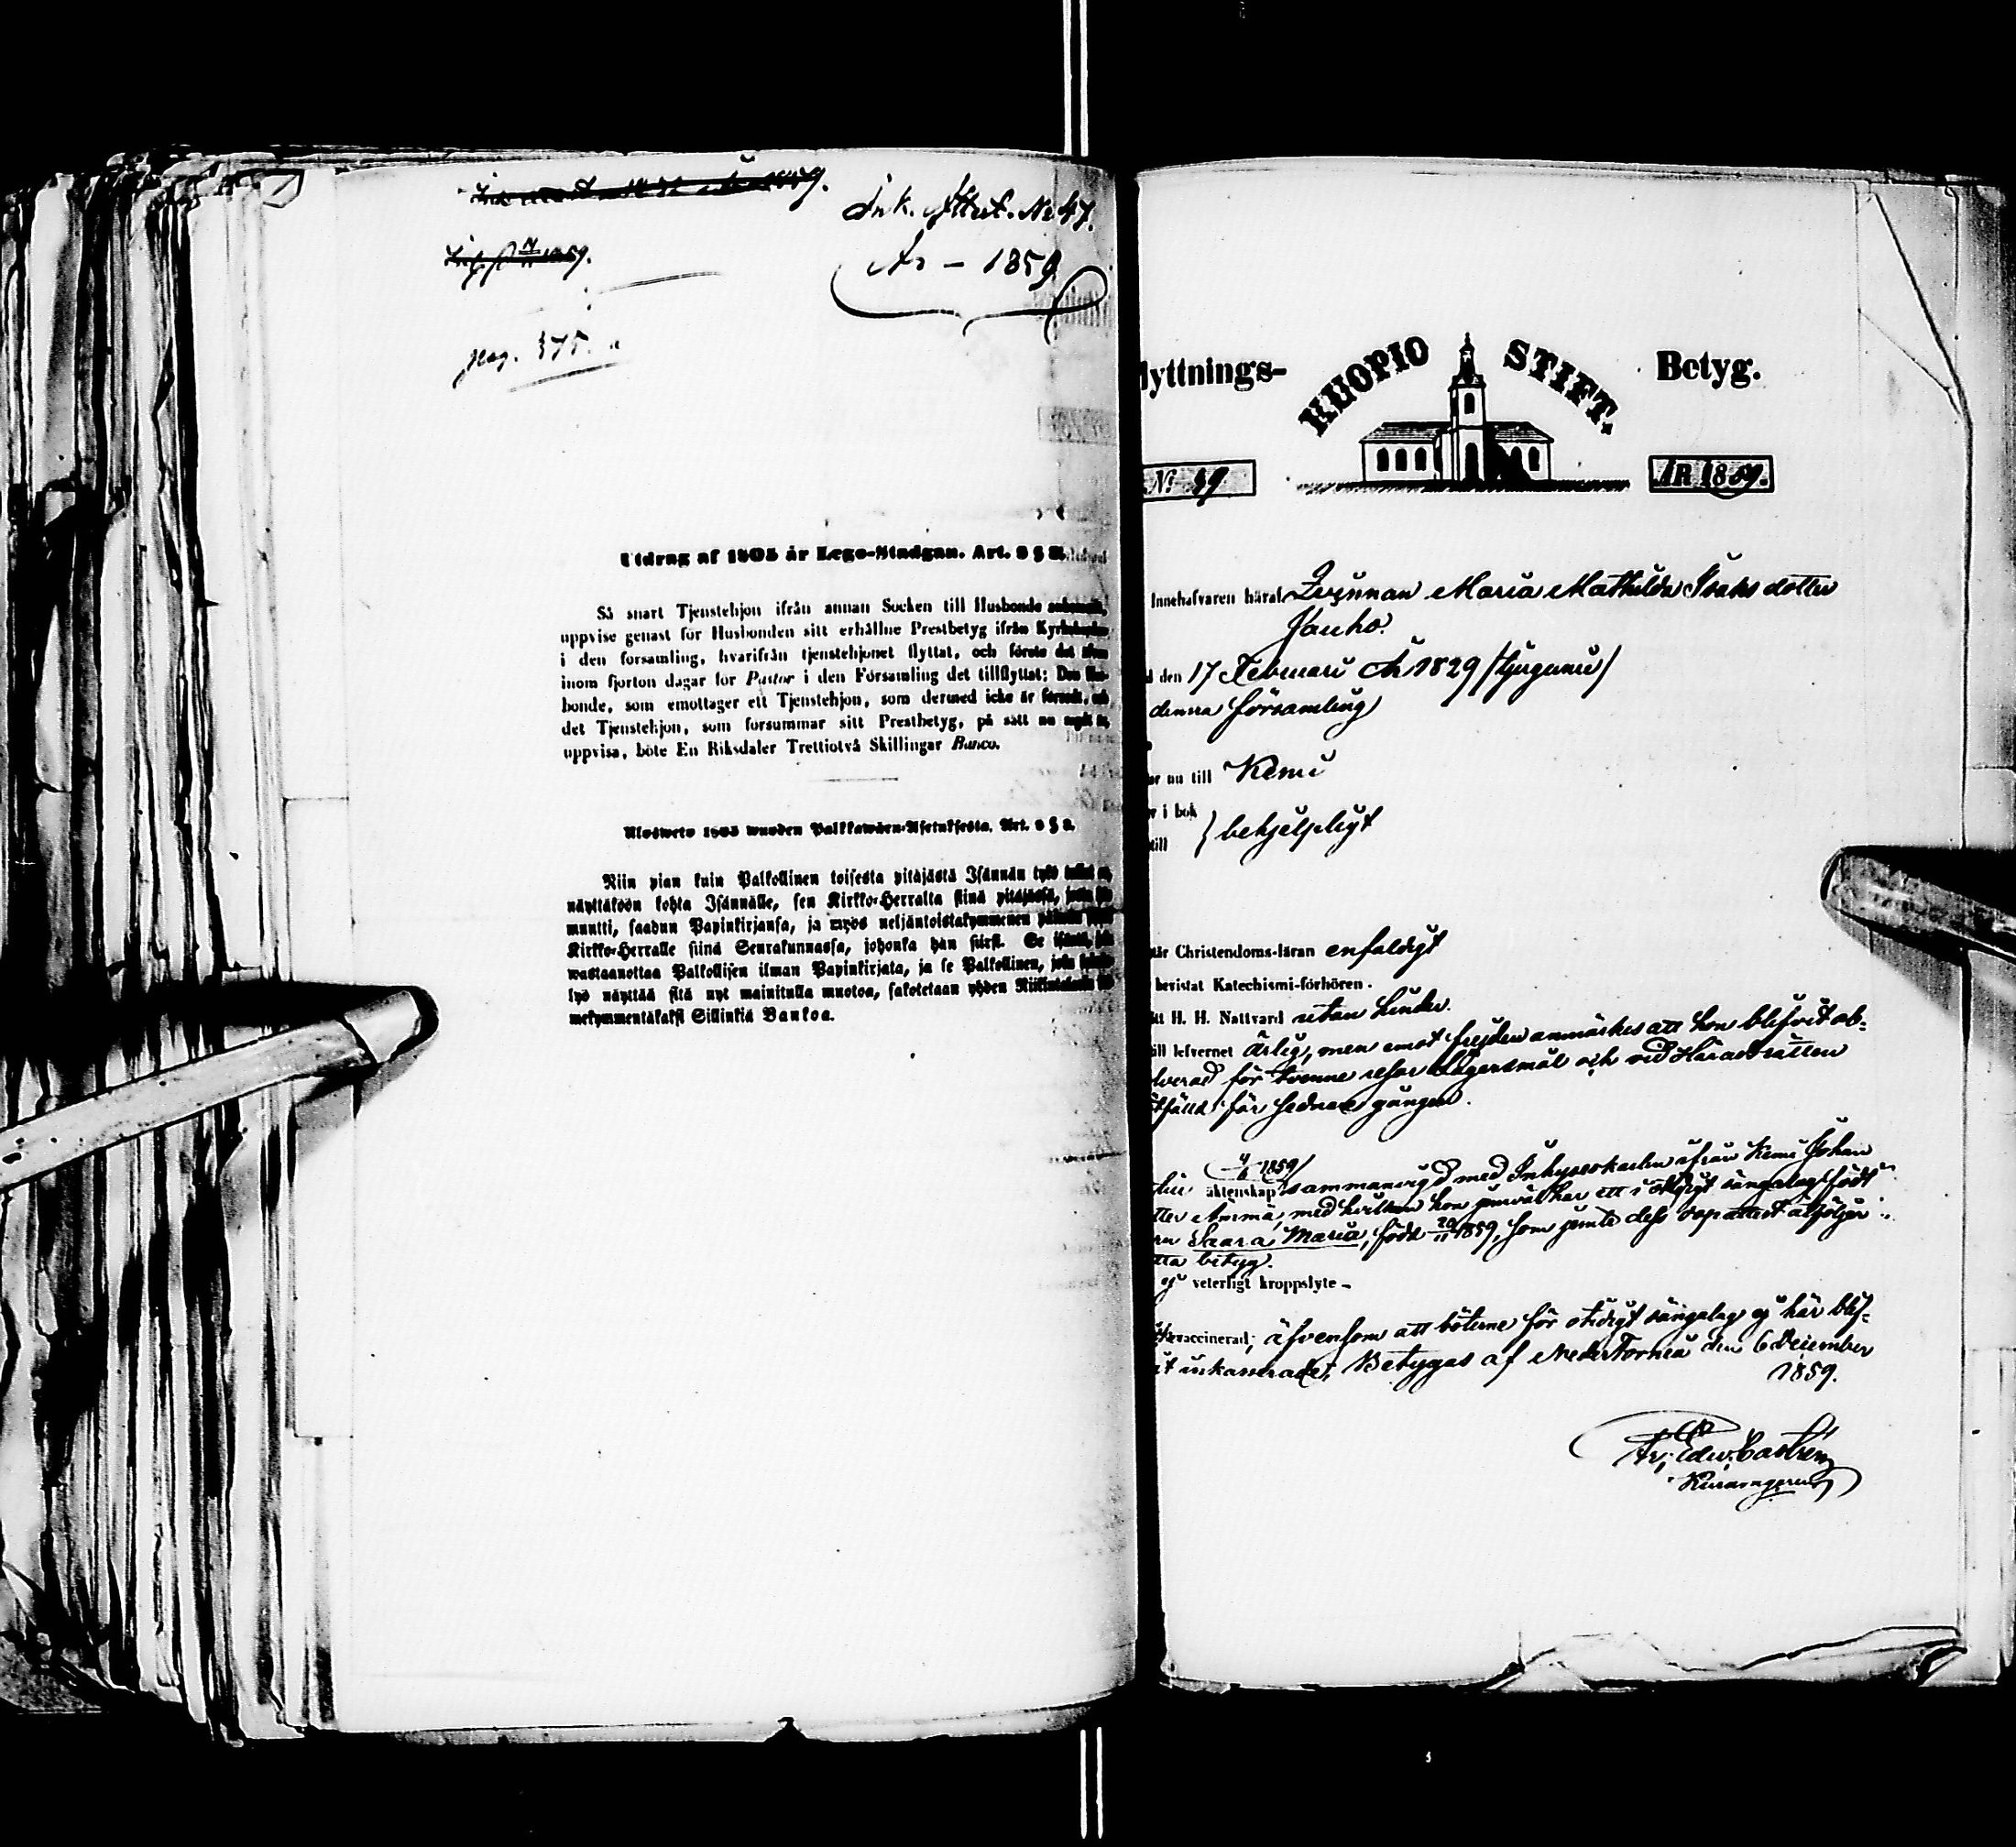 Ink. Attest. No 47.
År - 1859
pag. 375.
Utdrag af 1805 år Lego-Stadgan. Art. 9 § 2.
Så snart Tjenstehjon ifrån annan Socken till Husbonde
uppvise genast för Husbonden sitt erhållne Prestbetyg ifrån
i den forsamling, hvarifrån tjenstehjonet flyttat, och förete det
inom fjorton dagar for Pastor i den Församling det tillflyttat; Den
bonde, som emottager ett Tjenstehjon, som dermed icke är försedt,
det Tjenstehjon, som forsummar sitt Prestbetyg, på sätt nu
uppvisa, böte En Riksdaler Trettiotvå Skillingar Banco.
Ulosweto 1805 wuoden Palkkawäen-Asetuksesta. Art. 9 § 2.
Niin pian kuin Palkollinen toisesta pitäjästä Isännän tykö
näyttäköön kohta Isännälle, sen Kirkko-Herralta siinä pitäjässä,
muutti, saadun Papinkirjansa, ja myös neljäntoistakymmenen
Kirkko-Herralle siinä Seurakunnassa, johonka hän siirsi. Se
wastaanottaa Palkollisen ilman Papinkirjata, ja se Palkollinen, joka
lyö näyttää sitä nyt mainitulla muotoa, sakotetaan yhden
mekymmentäkaksi Sillinkiä Bankoa.
lyttnings- KUOPIO STIFT. Betyg.
No 49 ÅR 1859.
Innehafvaren häraf Qvinnan Maria Mathilda Isaks dotter
Jauho.
den 17 Februari År 1829 /tjugunio/
denna församling
nu till Kemi
i bok
till } behjelpligt
Christendoms-läran enfaldigt
bevistat Katechismi-förhören.
H. H. Nattvard utan hinder.
till lefvernet Ärlig, men emot frejden anmärkes att hon blifvit ab-
lverad för tvenne resor Lägersmål och vid Häradsrätten
fälld för sednare gången.
1859/
äktenskap sammanvigd med Inhyseskarlen ifrån Kemi Johan
Ammä, med hvilken hon jemväl har ett i otidigt sängalag födt
Saara Maria, född 20/11 1859, som jemte dess dopattest åtföljer
betyg.
ej veterligt kroppslyte -
vaccinerad; äfvensom att böterne för otidigt sängalag ej här blif-
it inkasserade; Betygas af Neder Torneå den 6 December
1859.
Fr. Edw. Castrén